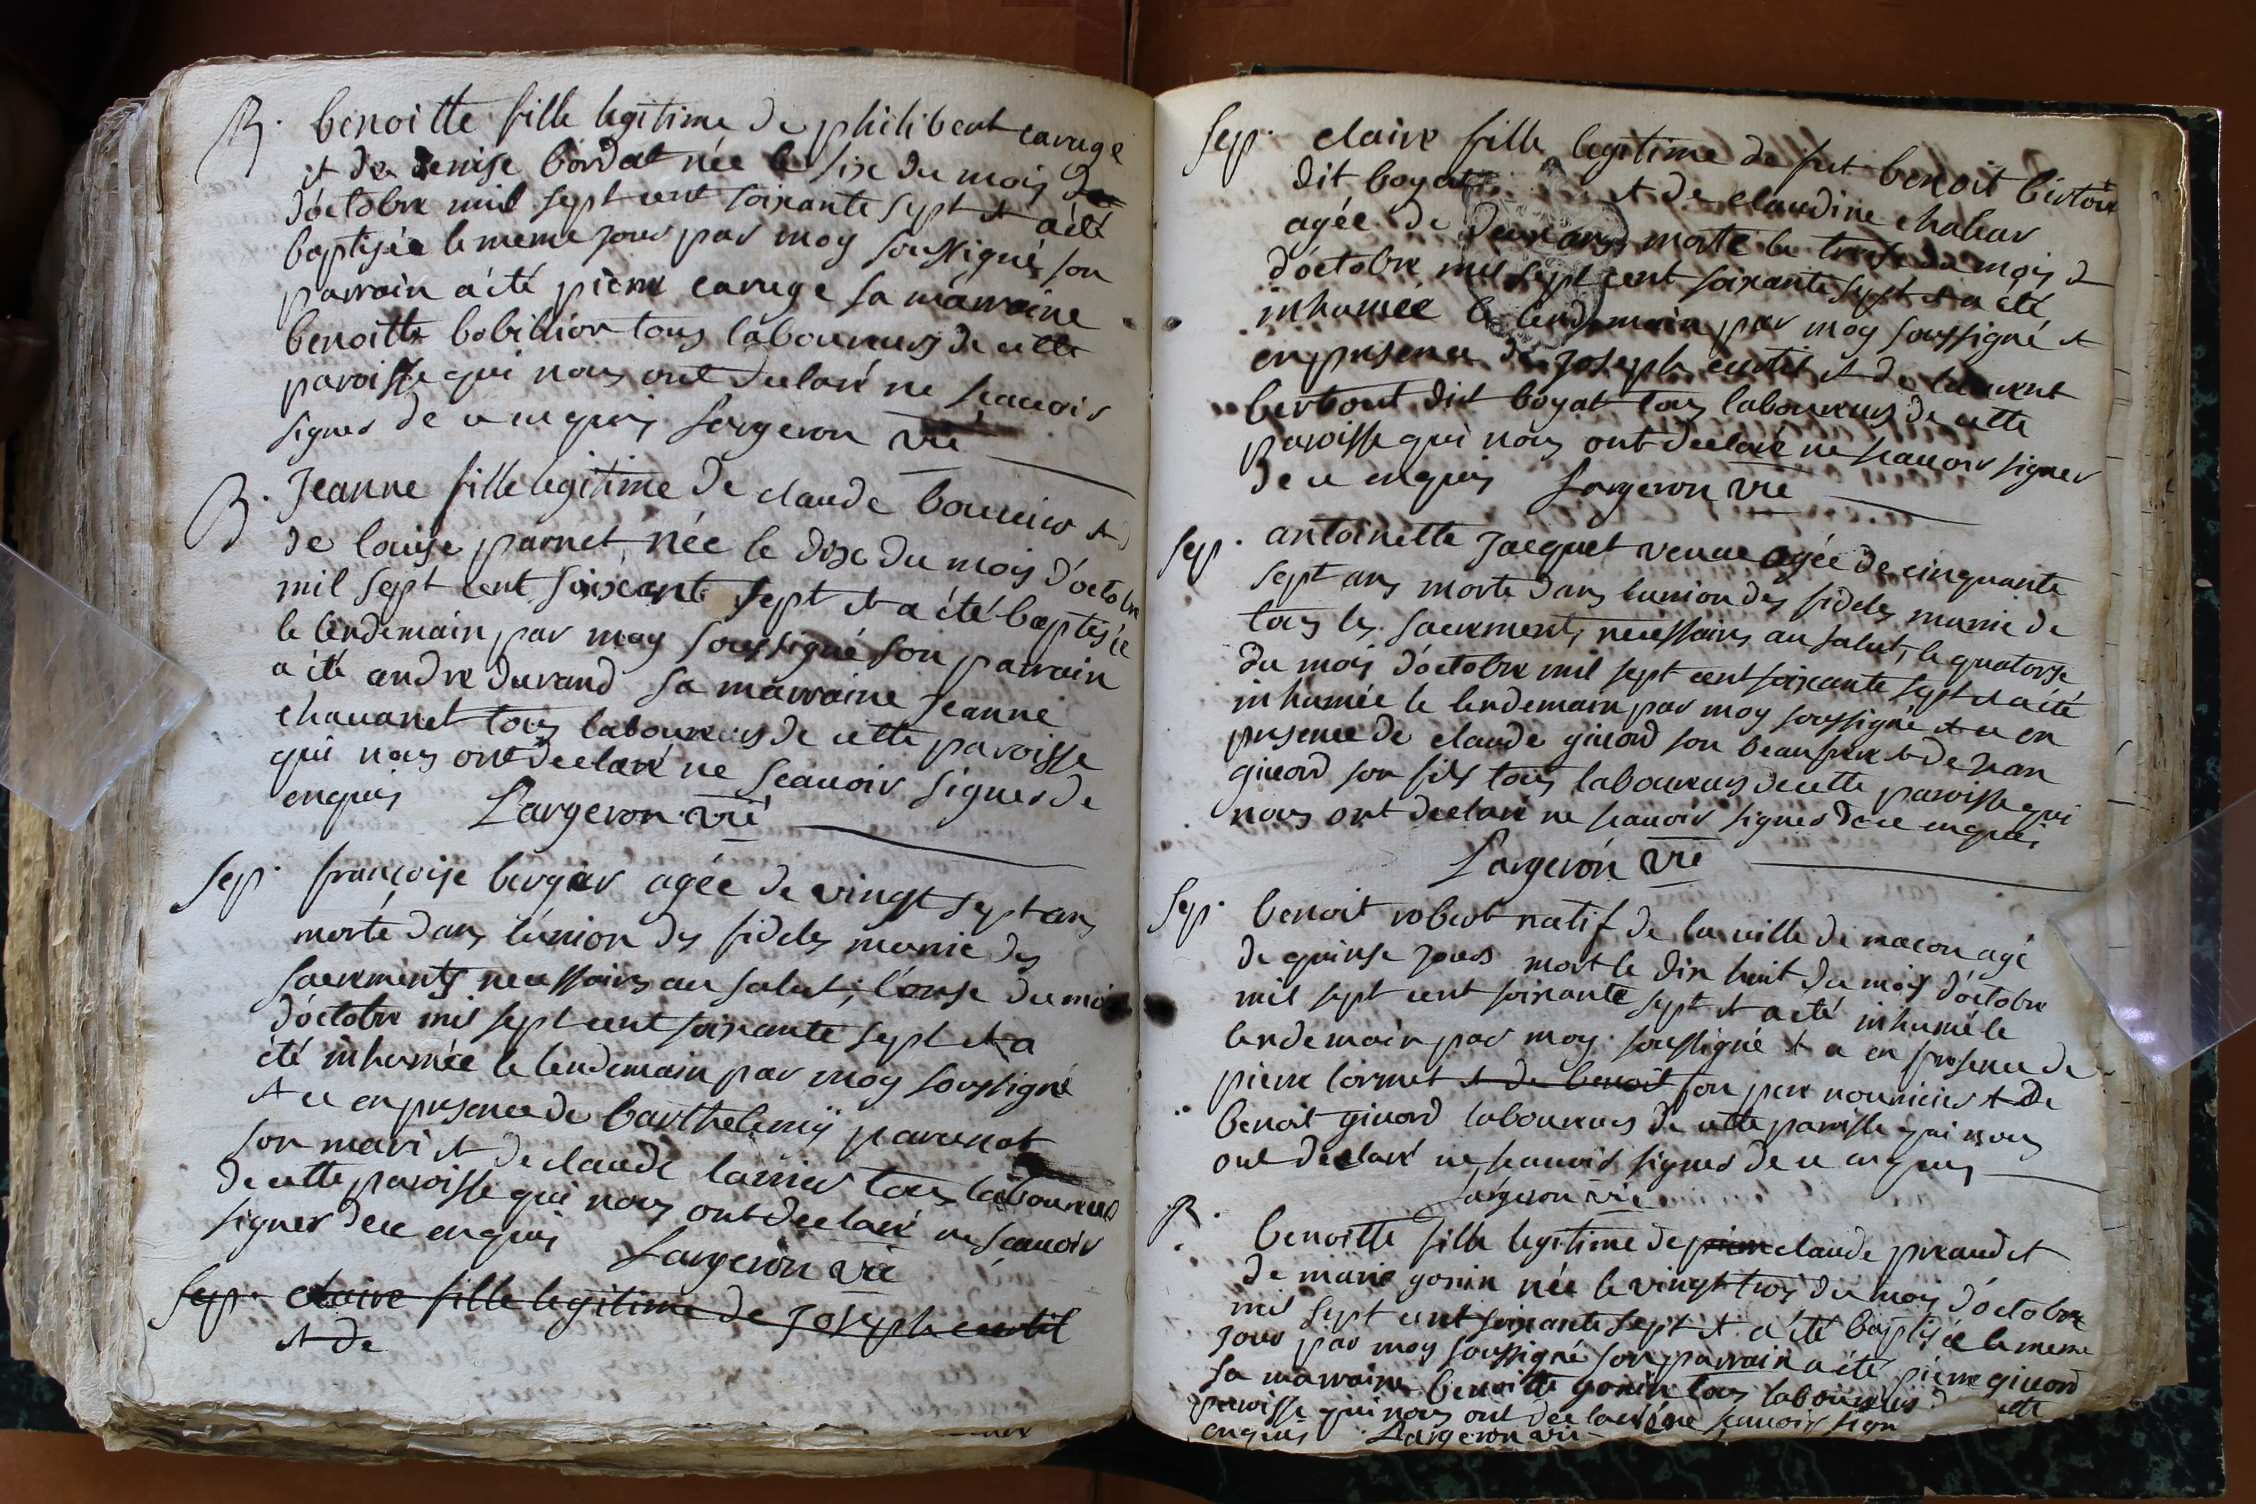 B. benoitte fille legitime de philibert caruge
et de denise bordat née le six du mois de
d'octobre mil sept cent soixante sept et a été
baptisée le meme jour par moy soussigné son
parrain a été pierre caruge sa marraine
benoitte bobillion tous laboureurs de cette
paroisse qui nous ont declaré ne scauoir
signer de ce enquis Largeron vic
B. Jeanne fille legitime de claude bouuier et
de louise parnet née le dix du mois d'octobre
mil sept cent soixante sept et a été baptisée
le lendemain par moy soussigné son parrain
a été andre durand sa marraine Jeanne
chauanet tous laboureurs de cette paroisse
qui nous ont declaré ne scauoir signer de
enquis Largeron vic
Sep. françoise bergier agée de vingt sept ans
morte dans l'union des fideles munie des
sacrements necessaires au salut, l'onse du mois
d'octobre mil sept cent soixante sept et a
été inhumée le lendemain par moy soussigné
et ce en presence de barthelemÿ parunot
son mari et de claude lainier tous laboureurs
de cette paroisse qui nous ont declaré ne scauoir
signer de ce enquis Largeron vic
Sep. claire fille legitime de Joseph curtil
et de
Sep. claire fille legitime de fut benoit
dit boyat et de claudine chaliar
agée de deux ans morte le treise du mois d
d'octobre mil sept cent soixante sept et a été
inhumée le lendemain par moy soussigné et
en presence de Joseph curtil et de laurent
bertout dit boyat tous laboureurs de cette
paroisse qui nous ont declaré ne scauoir signer
de ce enquis Largeron vic
Sep. antoinette Jacquet veuue agée de cinquante
sept ans morte dans lunion des fideles munie de
tous les sacrements necessaires au salut, le quatorse
du mois d'octobre mil sept cent soixante sept et a été
inhumée le lendemain par moy soussigné et ce en
presence de claude giuord son beaufrere et de Jean
giuord son fils tous laboureurs de cette paroisse qui
nous ont declaré ne scauoir signer de ce enquis
Largeron vic
Sep. benoit robert natif de la uille de macon agé
de quinse jours mort le dix huit du mois d'octobre
mil sept cent soixante sept et a été inhumé le
lendemain par moy soussigné et ce en presence de
pierre cormet et de benoit son pere nouricier et de
benoit giuord laboureurs de cette paroisse qui nous
ont declaré ne scauoir signer de ce enquis
Largeron vic
B. benoitte fille legitime de pierre claude preaud et
de marie gonin née le vingt trois du mois d'octobre
mil sept cent soixante sept et a été baptisée le meme
jour par moy soussigné son parrain a été pierre giuord
sa marraine benoitte gonin tous laboureurs d cette
paroisse qui nous ont declaré ne scauoir sign
enquis Largeron vic